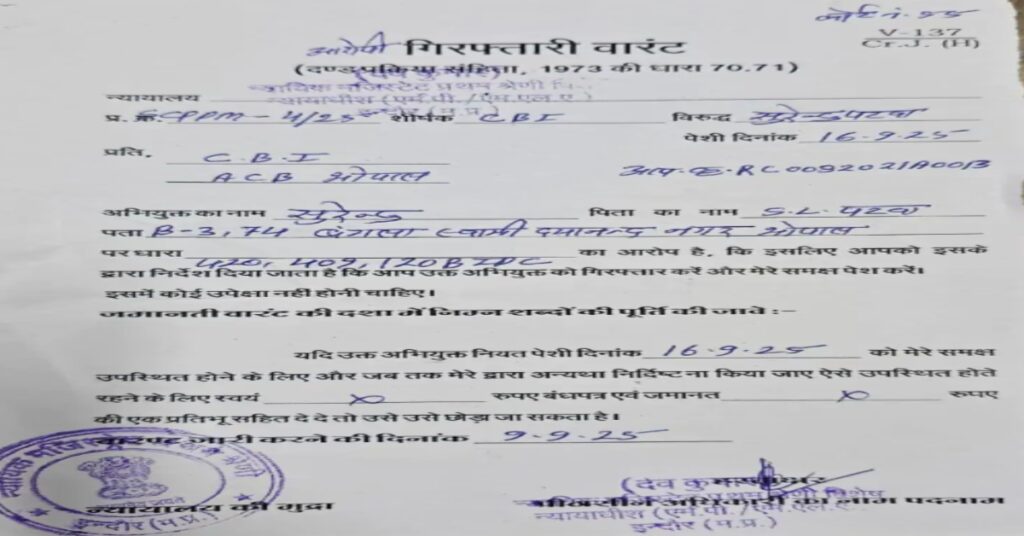 कोर्ट नं. 55
V-137
Cr.J. (H)
आरोपी गिरफ्तारी वारंट
(दण्ड प्रक्रिया संहिता, 1973 की धारा 70,71)
(देव कुमार)
न्यायिक मजिस्ट्रेट प्रथम श्रेणी
न्यायालय न्यायाधीश (एम.पी./एम.एल.ए.)
इन्दौर (म.प्र.)
प्र. क्र. SCPPM - 4/25 शीर्षक CBI विरूद्ध सुरेन्द्र पटवा
पेशी दिनांक 16.9.25
प्रति, C.B.I
ACB भोपाल अप. क्र. RC0092021A0013
अभियुक्त का नाम सुरेन्द्र पिता का नाम S.L. पटवा
पता B-3, 74 बंगला स्वामी दयानन्द नगर भोपाल
पर धारा 420, 409, 120B IPC का आरोप है, कि इसलिए आपको इसके
द्वारा निर्देश दिया जाता है कि आप उक्त अभियुक्त को गिरफ्तार करें और मेरे समक्ष पेश करें।
इसमें कोई उपेक्षा नही होनी चाहिए।
जमानती वारंट की दशा में निम्न शब्दों की पूर्ति की जावे :-
यदि उक्त अभियुक्त नियत पेशी दिनांक 16.9.25 को मेरे समक्ष
उपस्थित होने के लिए और जब तक मेरे द्वारा अन्यथा निर्दिष्ट ना किया जाए ऐसे उपस्थित होते
रहने के लिए स्वयं X रुपए बंधपत्र एवं जमानत X रुपए
की एक प्रतिभू सहित दे दे तो उसे उसे छोड़ा जा सकता है।
वारण्ट जारी करने की दिनांक 9.9.25
न्यायिक मजिस्ट्रेट प्रथम श्रेणी
इन्दौर (म.प्र.)
न्यायालय की मुद्रा
(देव कुमार)
पीठासीन अधिकारी का नाम पदनाम
न्यायाधीश (एम.पी./एम.एल.ए.
इन्दौर (म.प्र.)